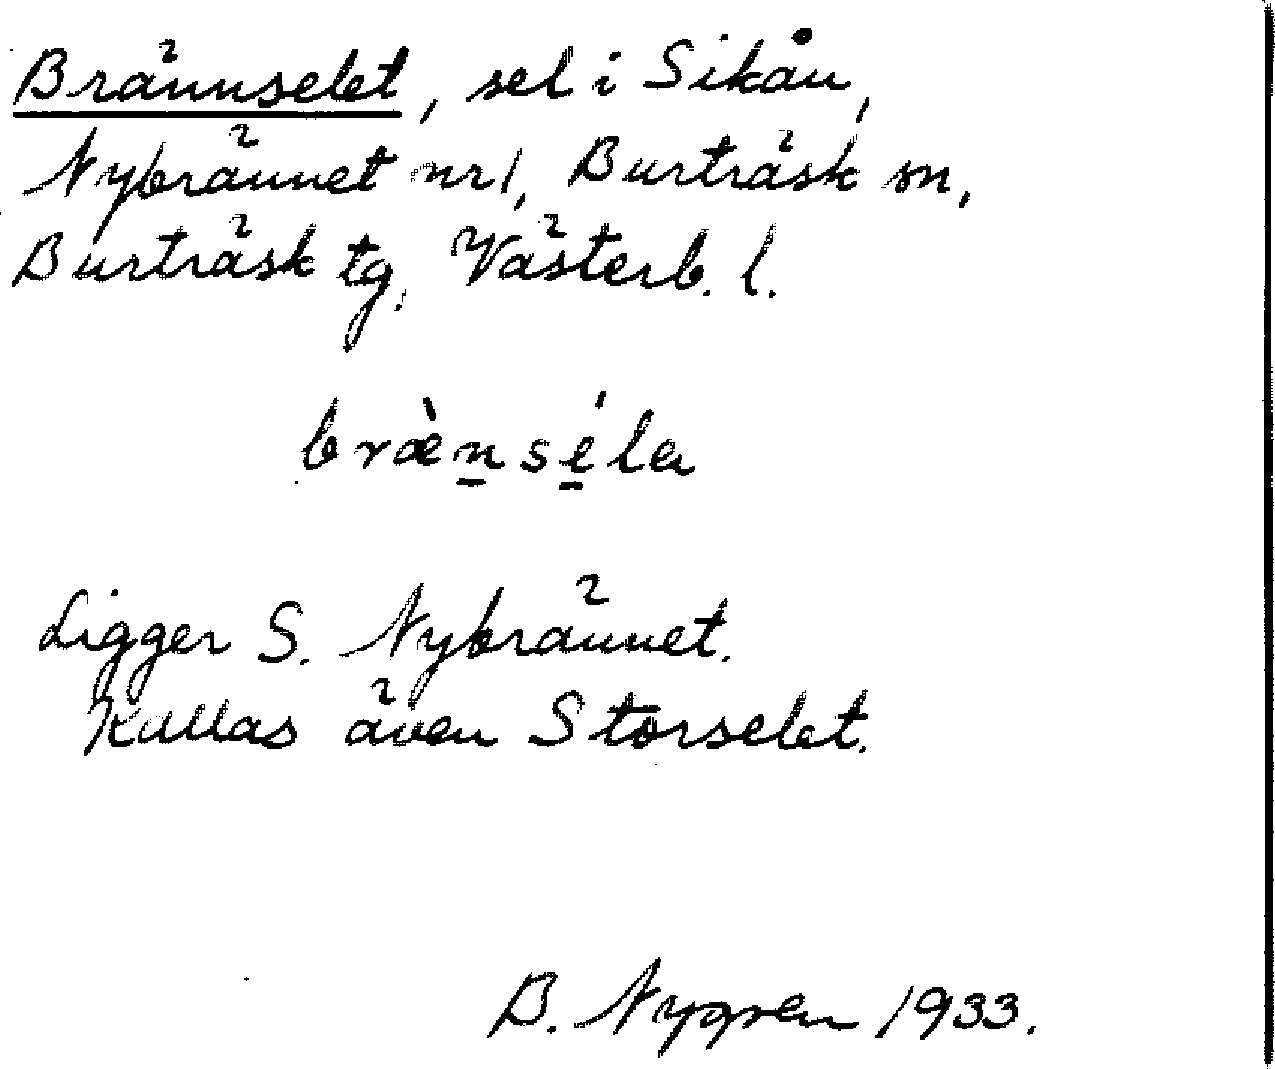 Brännselet, sel i Sikån,
Nybrännet nr 1, Burträsk sn,
Burträsk tg, Västerb. l.
bræ̀n̠sé̠la
Ligger S. Nybrännet.
Kallas även Storselet.
B. Nygren 1933.